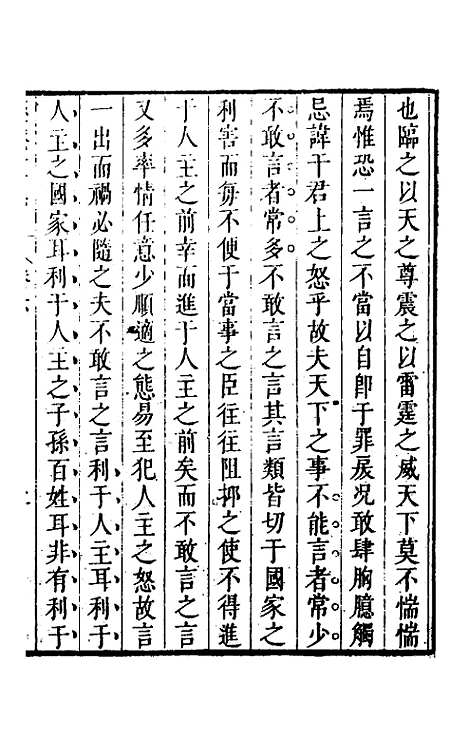 也臨之以天之尊震之以雷霆之威天下莫不惴惴
焉惟恐一言之不當以自卽于罪戾况敢肆胸臆觸
忌諱干君上之怒乎故夫天下之事不能言者常少
不敢言者常多不敢言之言其言類皆切于國家之
利害而每不便于當事之臣往往阻抑之使不得進
于人主之前幸而進于人主之前矣而不敢言之言
又多率情任意少順適之態易至犯人主之怒故言
一出而禍必隨之夫不敢言之言利于人主耳利于
人主之國家耳利于人主之子孫百姓耳非有利于